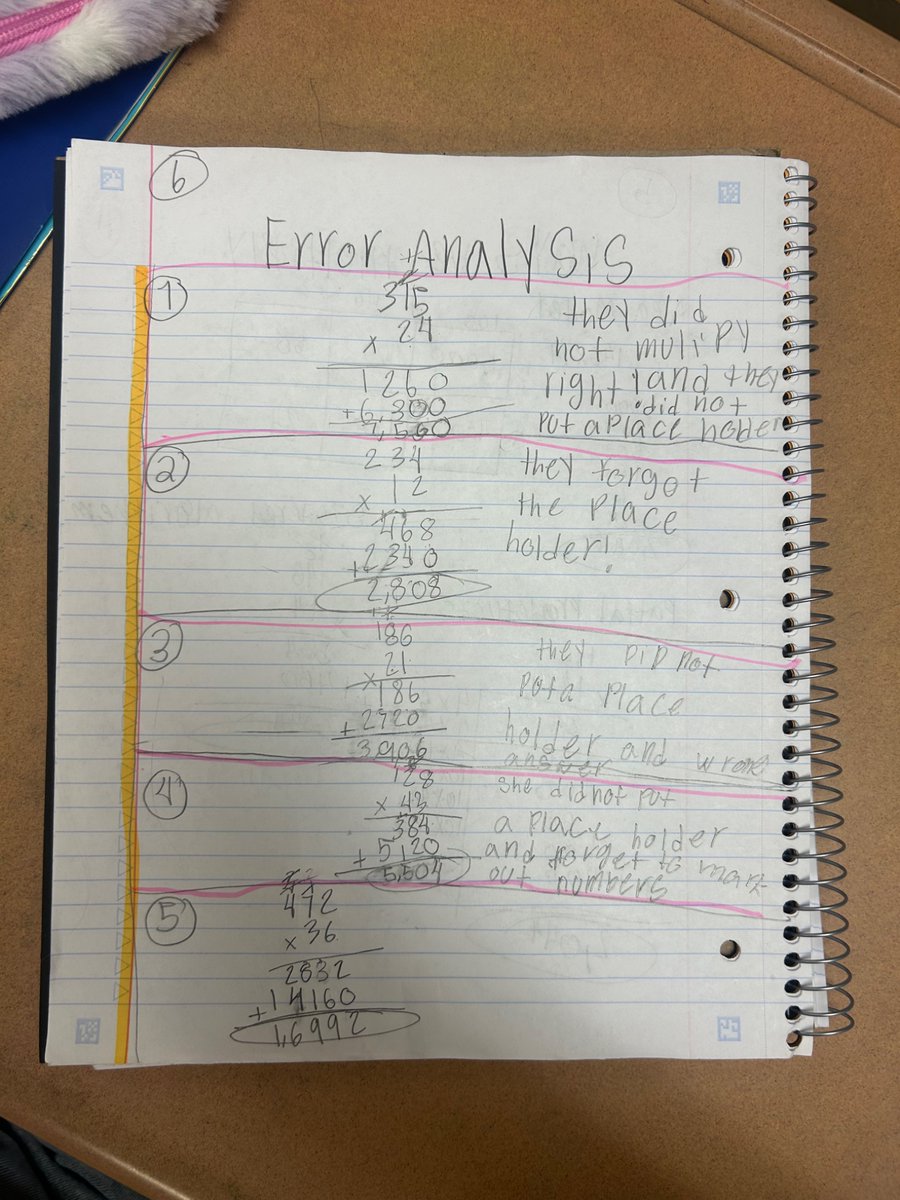 6
Error Analysis
1
315
x 24
1260
+6,300
7,560
they did
not mulipy
right! and they
did not
put a place holder
2
234
x 12
468
+2340
2,808
they forgot
the place
holder!
3
186
x 21
186
+2720
3,906
they DiD not
put a place
holder and wrong
answer
4
128
x 43
384
+ 5,120
5,504
she did not put
a place holder
and forget to mark
out numbers
5
472
x 36
2832
+14160
1,6992